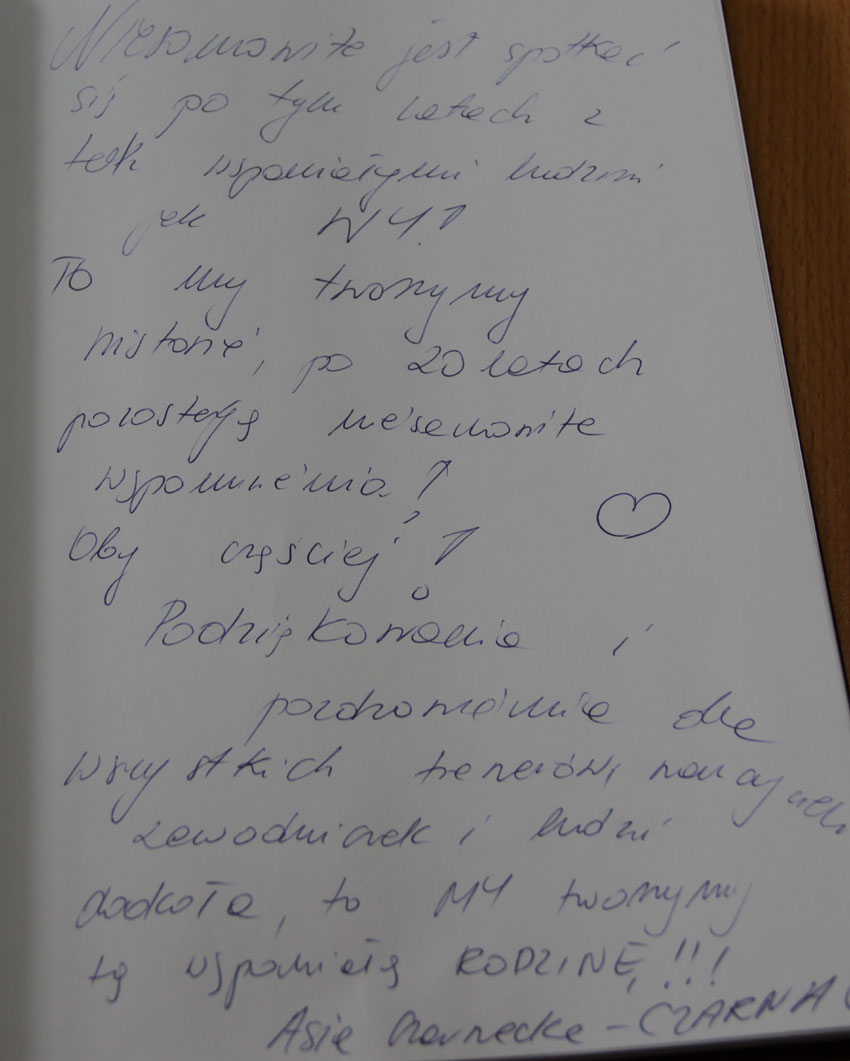 Niesamowite jest spotkać
się po tylu latach z
tak wspaniałymi ludźmi
jak WY!
To my tworzymy
historię, po 20 latach
pozostają niesamowite
wspomnienia!
Oby częściej!
Podziękowania i
pozdrowienia dla
wszystkich trenerów,
zawodniczek i ludzi
dookoła, to MY tworzymy
tą wspaniałą RODZINĘ!!!
Asia Czarnecka - CZARNA